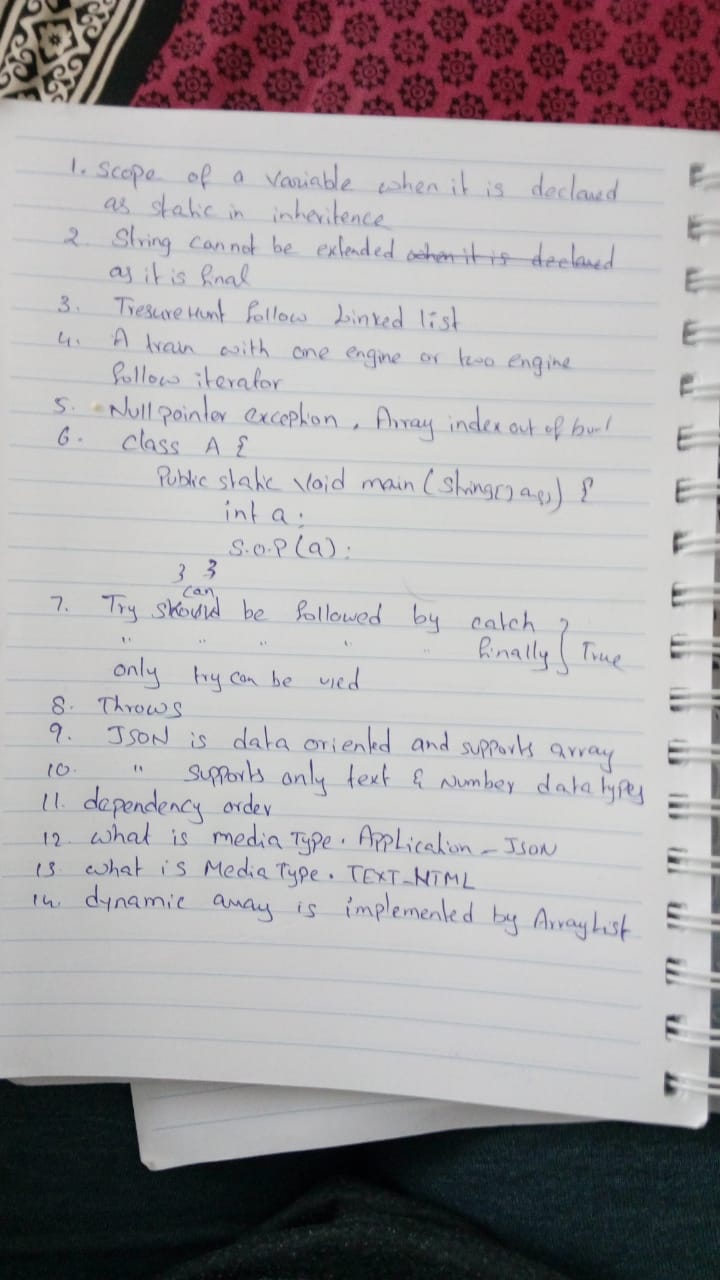 1. Scope of a variable when it is declared
as static in inheritence
2. String cannot be extended when it is declared
as it is final
3. Tresure Hunt follow Linked list
4. A train with one engine or two engine
follow iterator
5. Null pointer exception, Array index out of
6. class A {
Public static void main (String[] args) {
int a;
S.O.P(a);
} }
can
7. Try should be followed by catch }
" " " " " finally } True
only try can be used
8. Throws
9. JSON is data oriented and supports array
10. " supports only text & Number data types
11. dependency order
12. what is media Type. Application - JSON
13. what is Media Type. TEXT-HTML
14. dynamic array is implemented by Array List